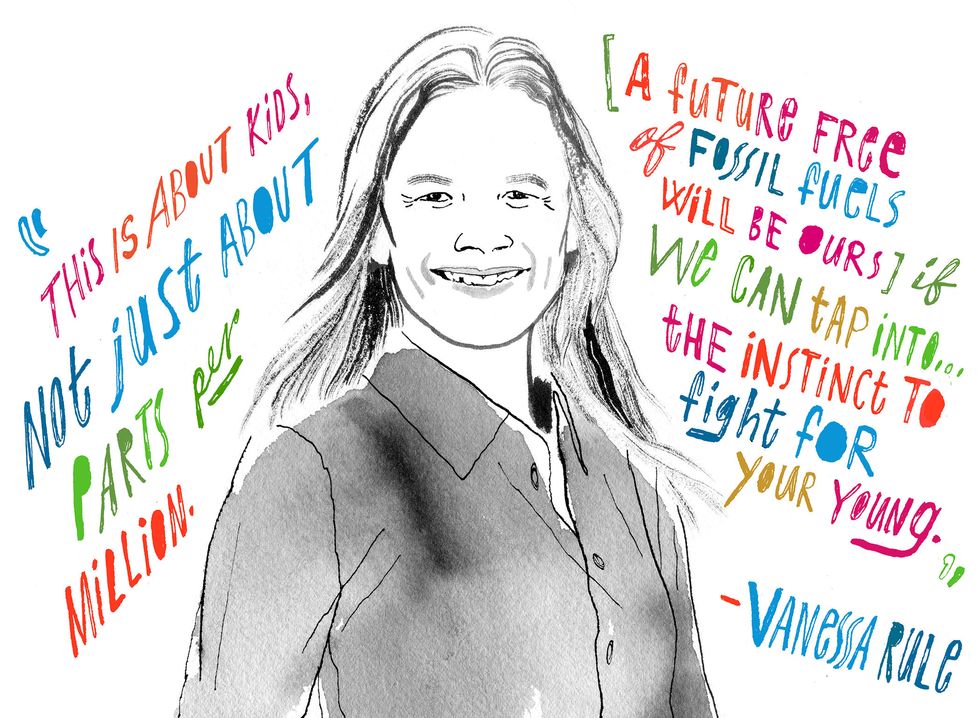 “THIS IS ABOUT KIDS,
NOT just ABOUT
PARTS per
MILLION.
[A fuTURE FREE
of FOSSIL fuels
WILL BE OURS] if
We CAN tAP iNTO...
tHE iNSTINCt TO
fight foR
YOUR YOUNG.”
-VANESSA RULE